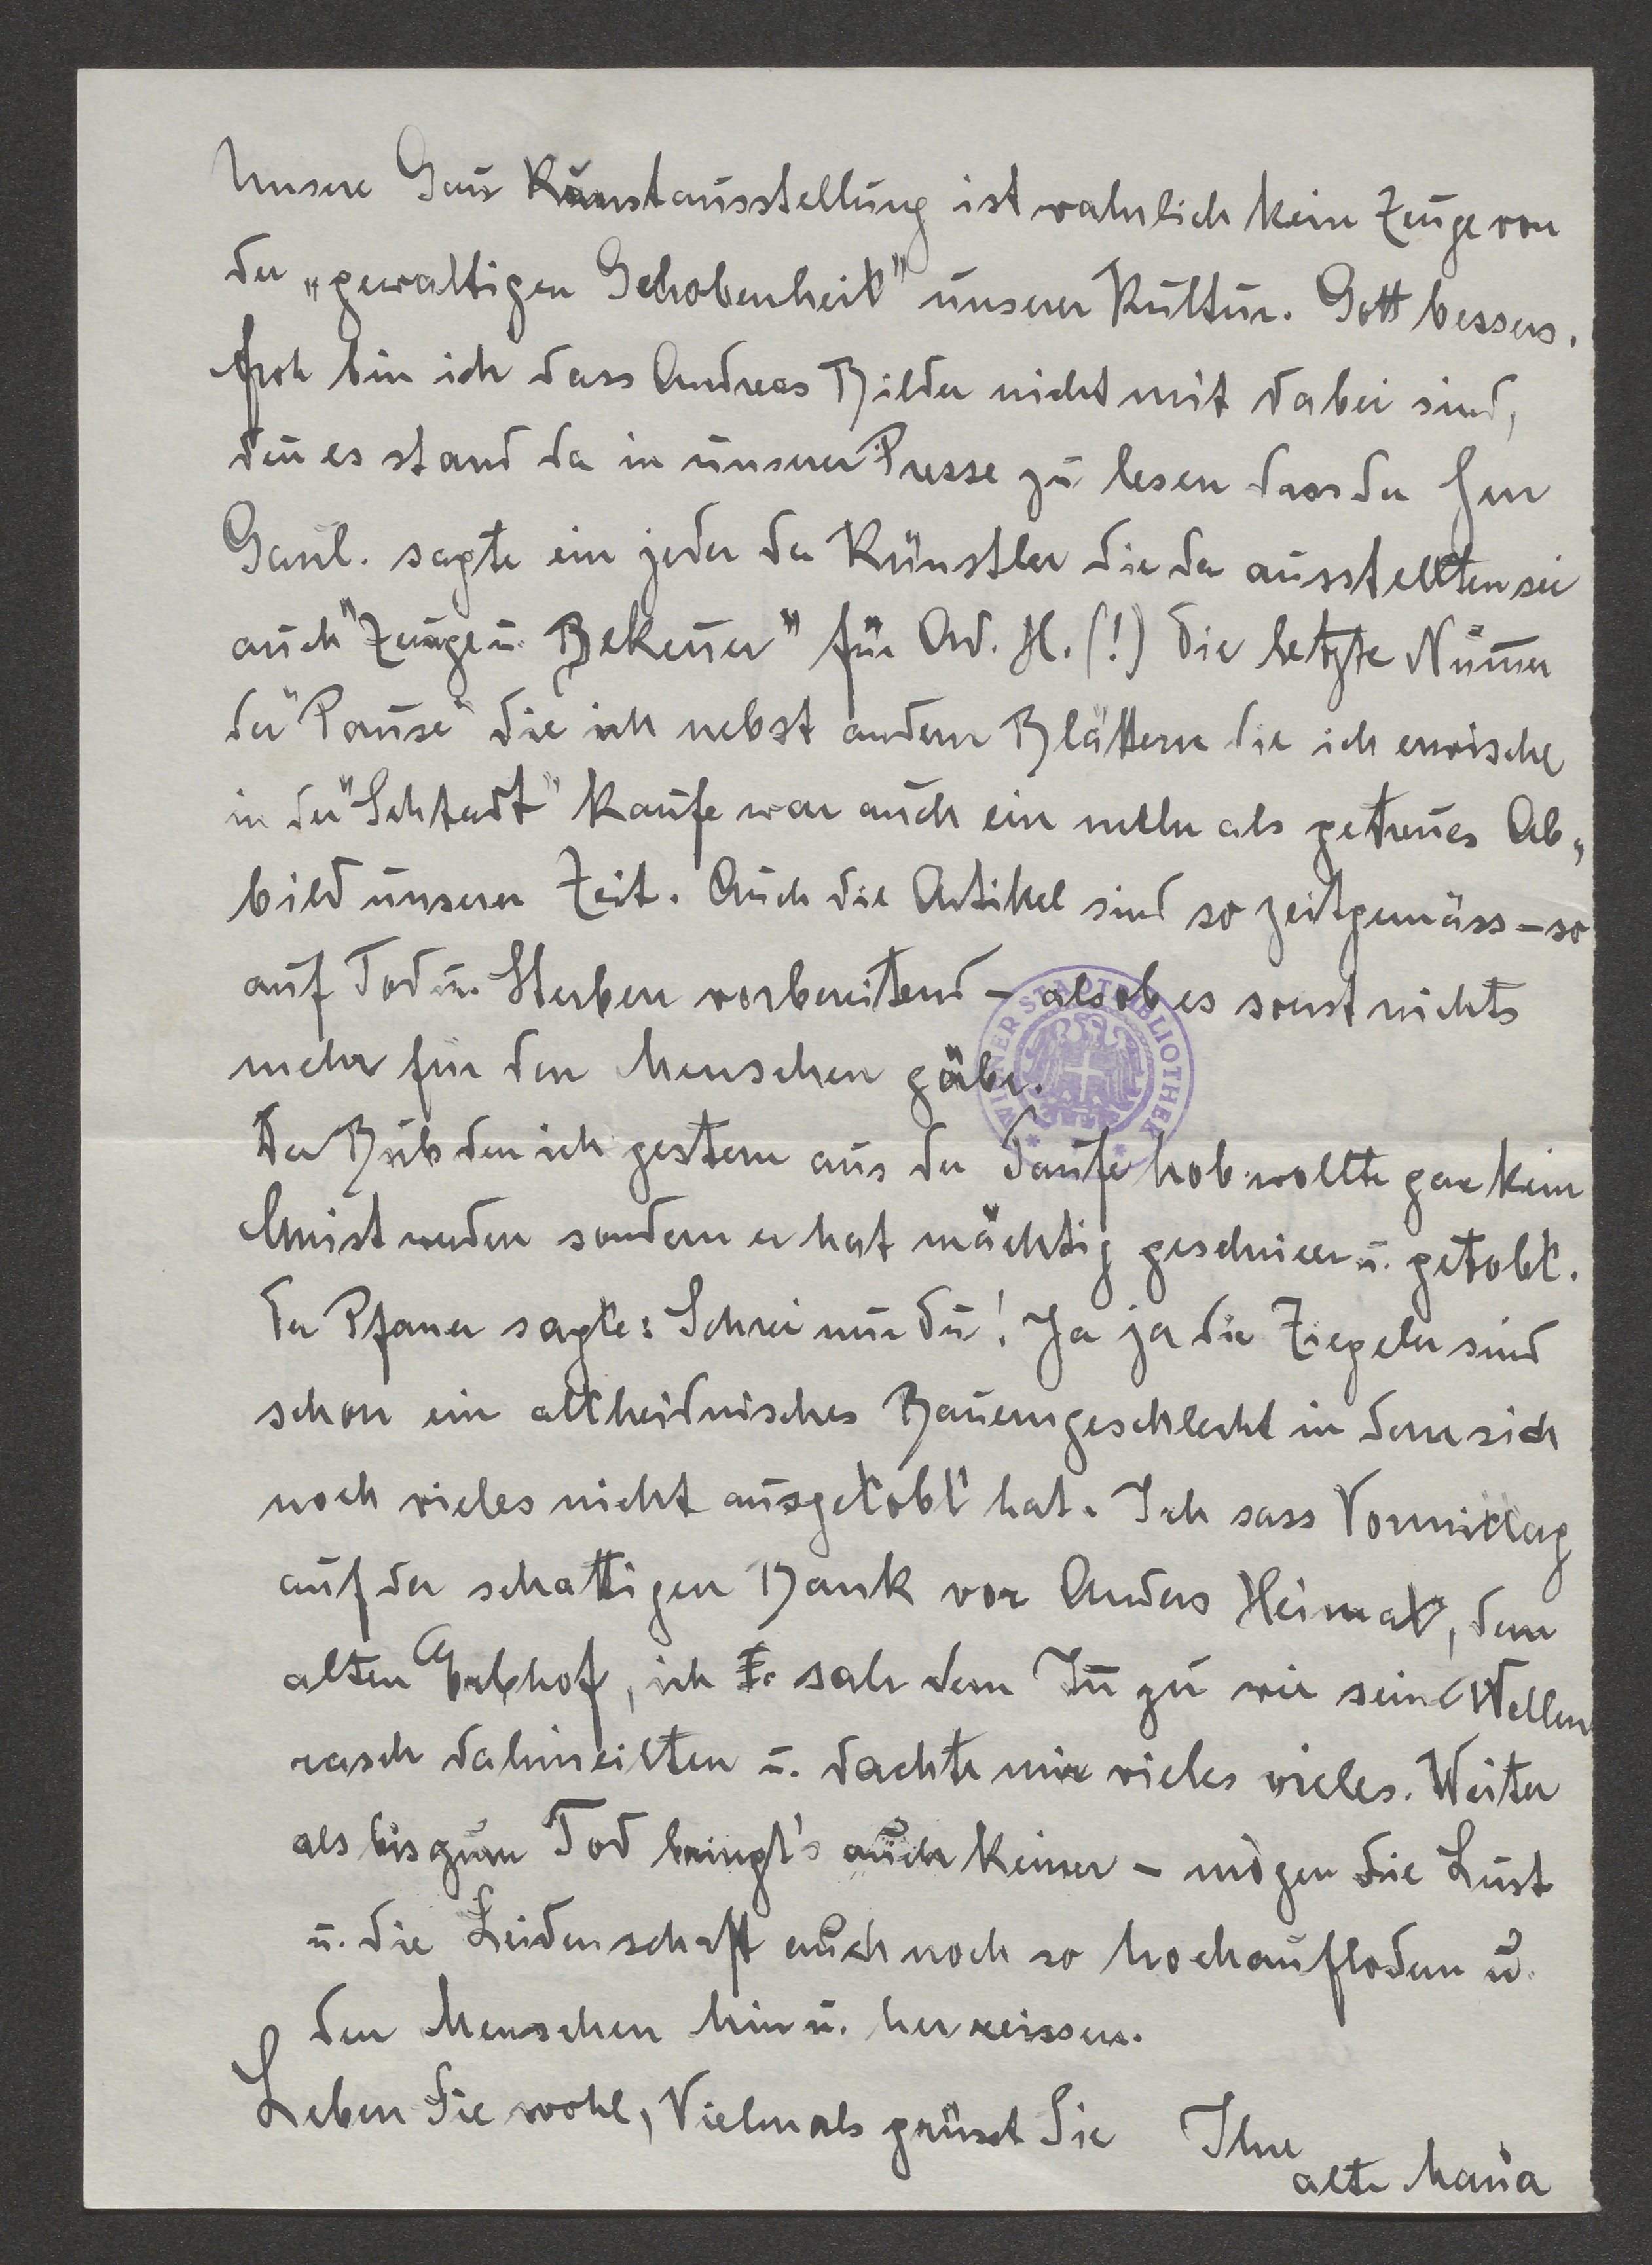 Unsere Gau Kunstausstellung ist wahrlich kein Zeuge von
der „gewaltigen Gehobenheit" unserer Kultur. Gott bessers.
froh bin ich dass Andreas Bilder nicht mit dabei sind,
den̄ es stand da in unserer Presse zu lesen dass der Herr
Gaul. sagte ein jeder der Künstler die da ausstellten sei
auch "Zeuge u. Beken̄er" für Ad. H. (!) Die letzte Num̄er
der "Pause" die ich nebst andern Blättern die ich erwische
in der "Schtadt" kaufe war auch ein mehr als getreues Ab„
bild unserer Zeit. Auch die Artikel sind so zeitgemäss – so
auf Tod u. Sterben vorbereitend – als ob es sonst nichts
mehr für den Menschen gäbe.
Der Bub den ich gestern aus der Taufe hob wollte gar kein
Christ werden sondern er hat mächtig geschrieen u. getobt.
Der Pfarrer sagte: Schrei nur du! Ja ja die Ziegeler sind
schon ein altheidnisches Bauerngeschlecht in dem sich
noch vieles nicht ausgetobt hat. Ich sass Vormittag
auf der schattigen Bank vor Anders Heimat, dem
alten Erbhof, ich sah dem In̄ zu wie seine Wellen
rasch dahineilten u. dachte mir vieles vieles. Weiter
als bis zum Tod bringt's auch keiner – mögen die Lust
u. die Leidenschaft auch noch so hochauflodern u.
den Menschen hin u. her reissen.
Leben Sie wohl, Vielmals grüsst Sie Ihre
alte Maria
WIENER STADTBIBLIOTHEK